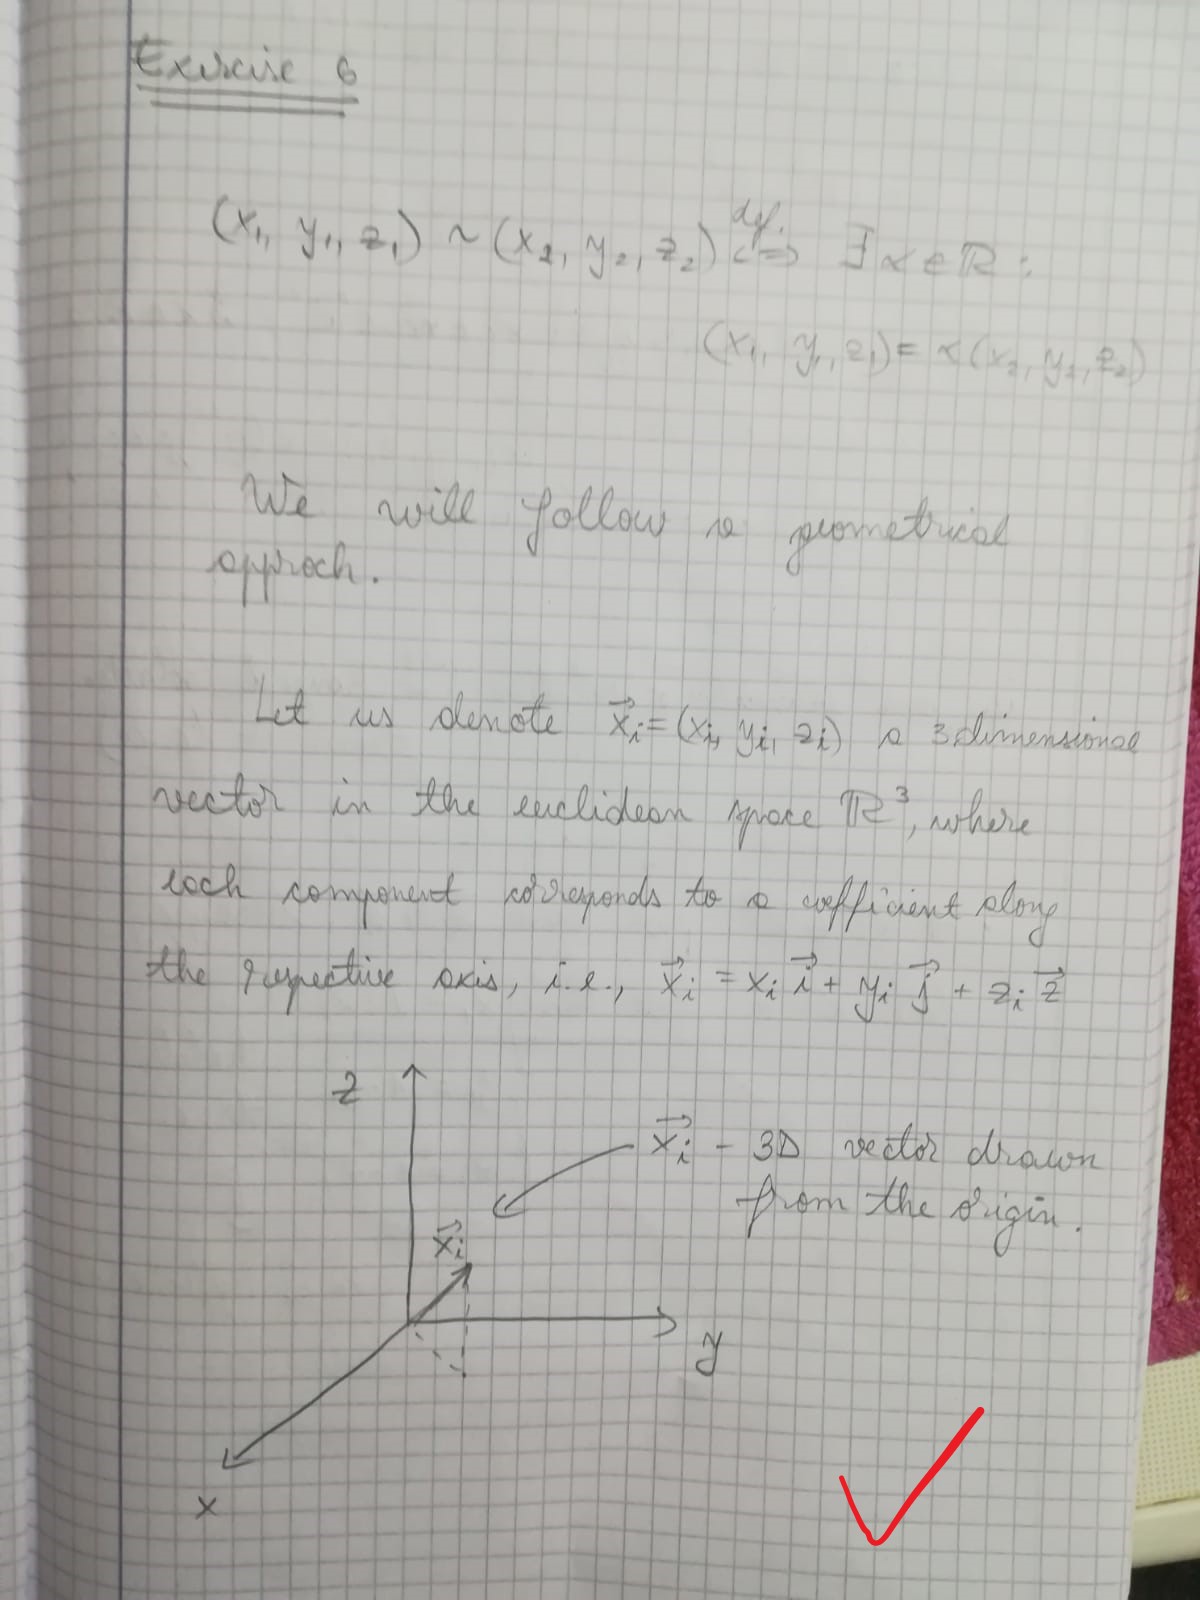 Exercise 6
(x₁, y₁, z₁) ~ (x₂, y₂, z₂) def. <=> ∃ α ∈ ℝ :
(x₁, y₁, z₁) = α (x₂, y₂, z₂)
We will follow a geometrical
approch.
Let us denote x⃗ᵢ = (xᵢ, yᵢ, zᵢ) a 3dimensional
vector in the euclidean space ℝ³, where
each component corresponds to a coefficient along
the respective axis, i.e., x⃗ᵢ = xᵢ i⃗ + yᵢ j⃗ + zᵢ z⃗
z
x⃗ᵢ - 3D vector drawn
from the origin.
x⃗ᵢ
y
x